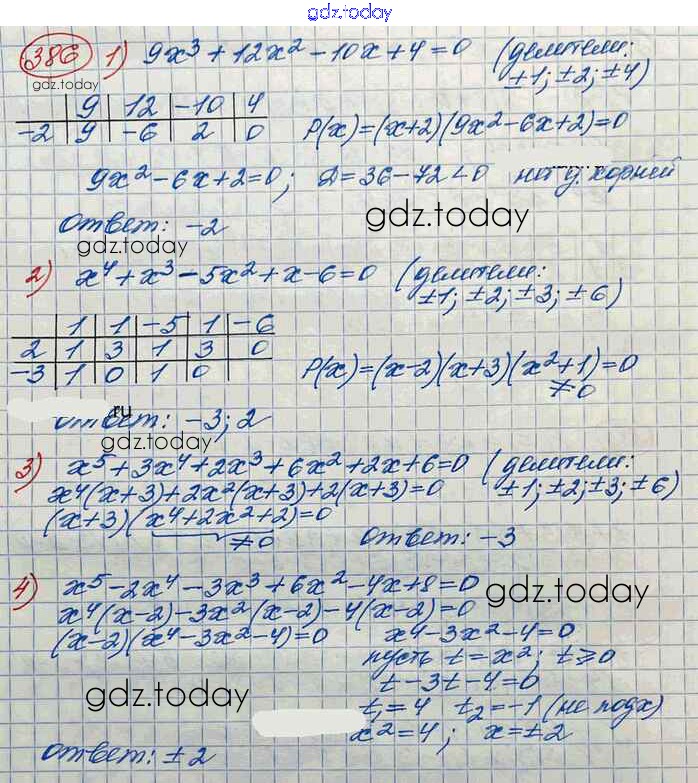 gdz.today
386 1) 9x³ + 12x² - 10x + 4 = 0 (делители:
±1; ±2; ±4)
gdz.today
9 12 -10 4
-2 9 -6 2 0 P(x) = (x+2)(9x² - 6x + 2) = 0
9x² - 6x + 2 = 0; D = 36 - 72 < 0 нет д. корней
Ответ: -2
gdz.today
gdz.today
2) x⁴ + x³ - 5x² + x - 6 = 0 (делители:
±1; ±2; ±3; ±6)
1 1 -5 1 -6
2 1 3 1 3 0
-3 1 0 1 0 P(x) = (x-2)(x+3)(x²+1) = 0
≠0
ru
Ответ: -3; 2
gdz.today
3) x⁵ + 3x⁴ + 2x³ + 6x² + 2x + 6 = 0 (делители:
±1; ±2; ±3; ±6)
x⁴(x+3) + 2x²(x+3) + 2(x+3) = 0
(x+3)(x⁴ + 2x² + 2) = 0
≠0 Ответ: -3
4) x⁵ - 2x⁴ - 3x³ + 6x² - 4x + 8 = 0
gdz.today
x⁴(x-2) - 3x²(x-2) - 4(x-2) = 0
(x-2)(x⁴ - 3x² - 4) = 0 x⁴ - 3x² - 4 = 0
пусть t = x²; t ⩾ 0
t - 3t - 4 = 0
gdz.today
t₁ = 4 t₂ = -1 (не подх)
x² = 4; x = ±2
Ответ: ±2